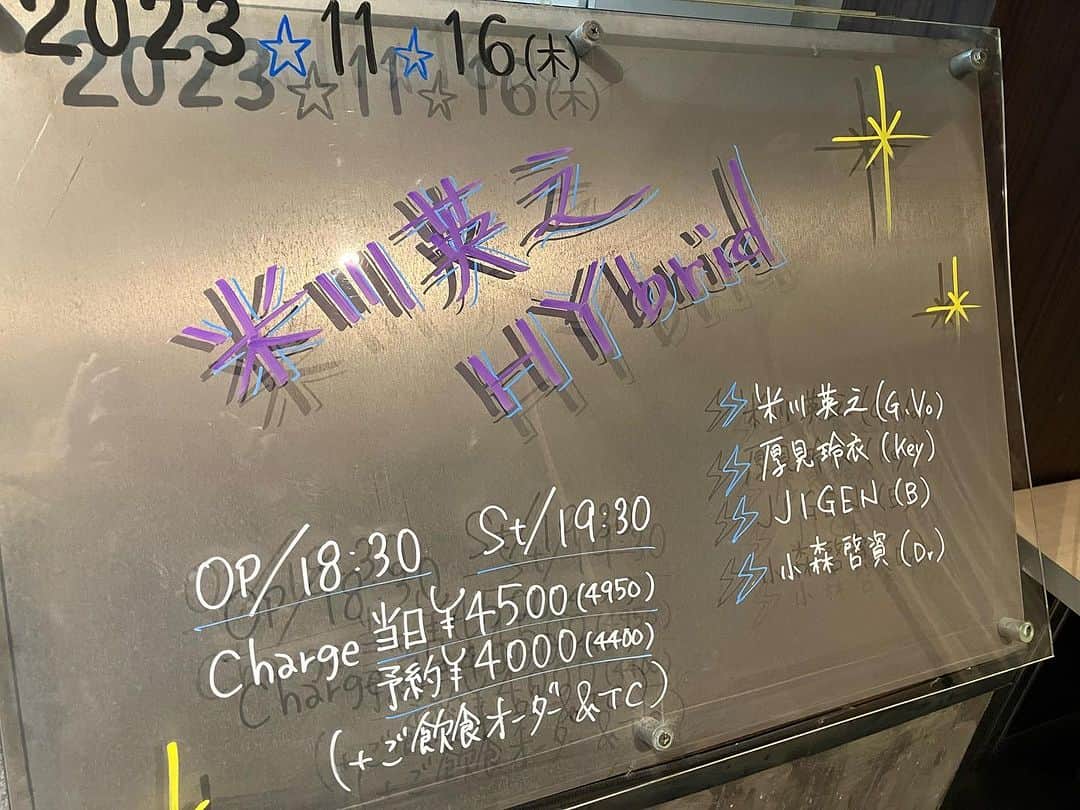 2023☆11☆16(木)
米川英之
HYbrid
米川英之(G.Vo)
厚見玲衣(Key)
JIGEN(B)
小森啓資(Dr)
OP/18:30 St/19:30
Charge 当日¥4500(4950)
予約¥4000(4400)
(+ご飲食オーダー&TC)